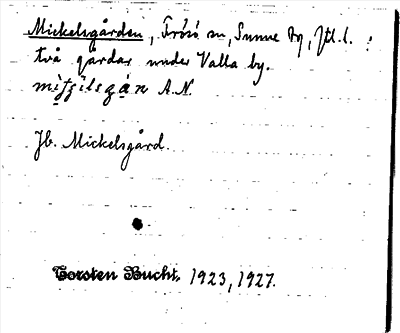 Mickelsgården, Frösö sn, Sunne tg, Jtl.l. :
två gårdar under Valla by.
A.N.
Jb. Mickelsgård.
Torsten Bucht. 1923, 1927.